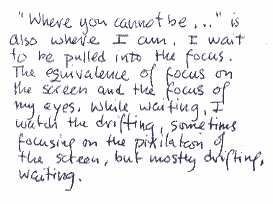 "Where you cannot be..." is
also where I am. I wait
to be pulled into the focus.
The equivalence of focus on
the screen and the focus of
my eyes. While waiting, I
watch the drifting, sometimes
focusing on the pixilation of
the screen, but mostly drifting,
waiting.